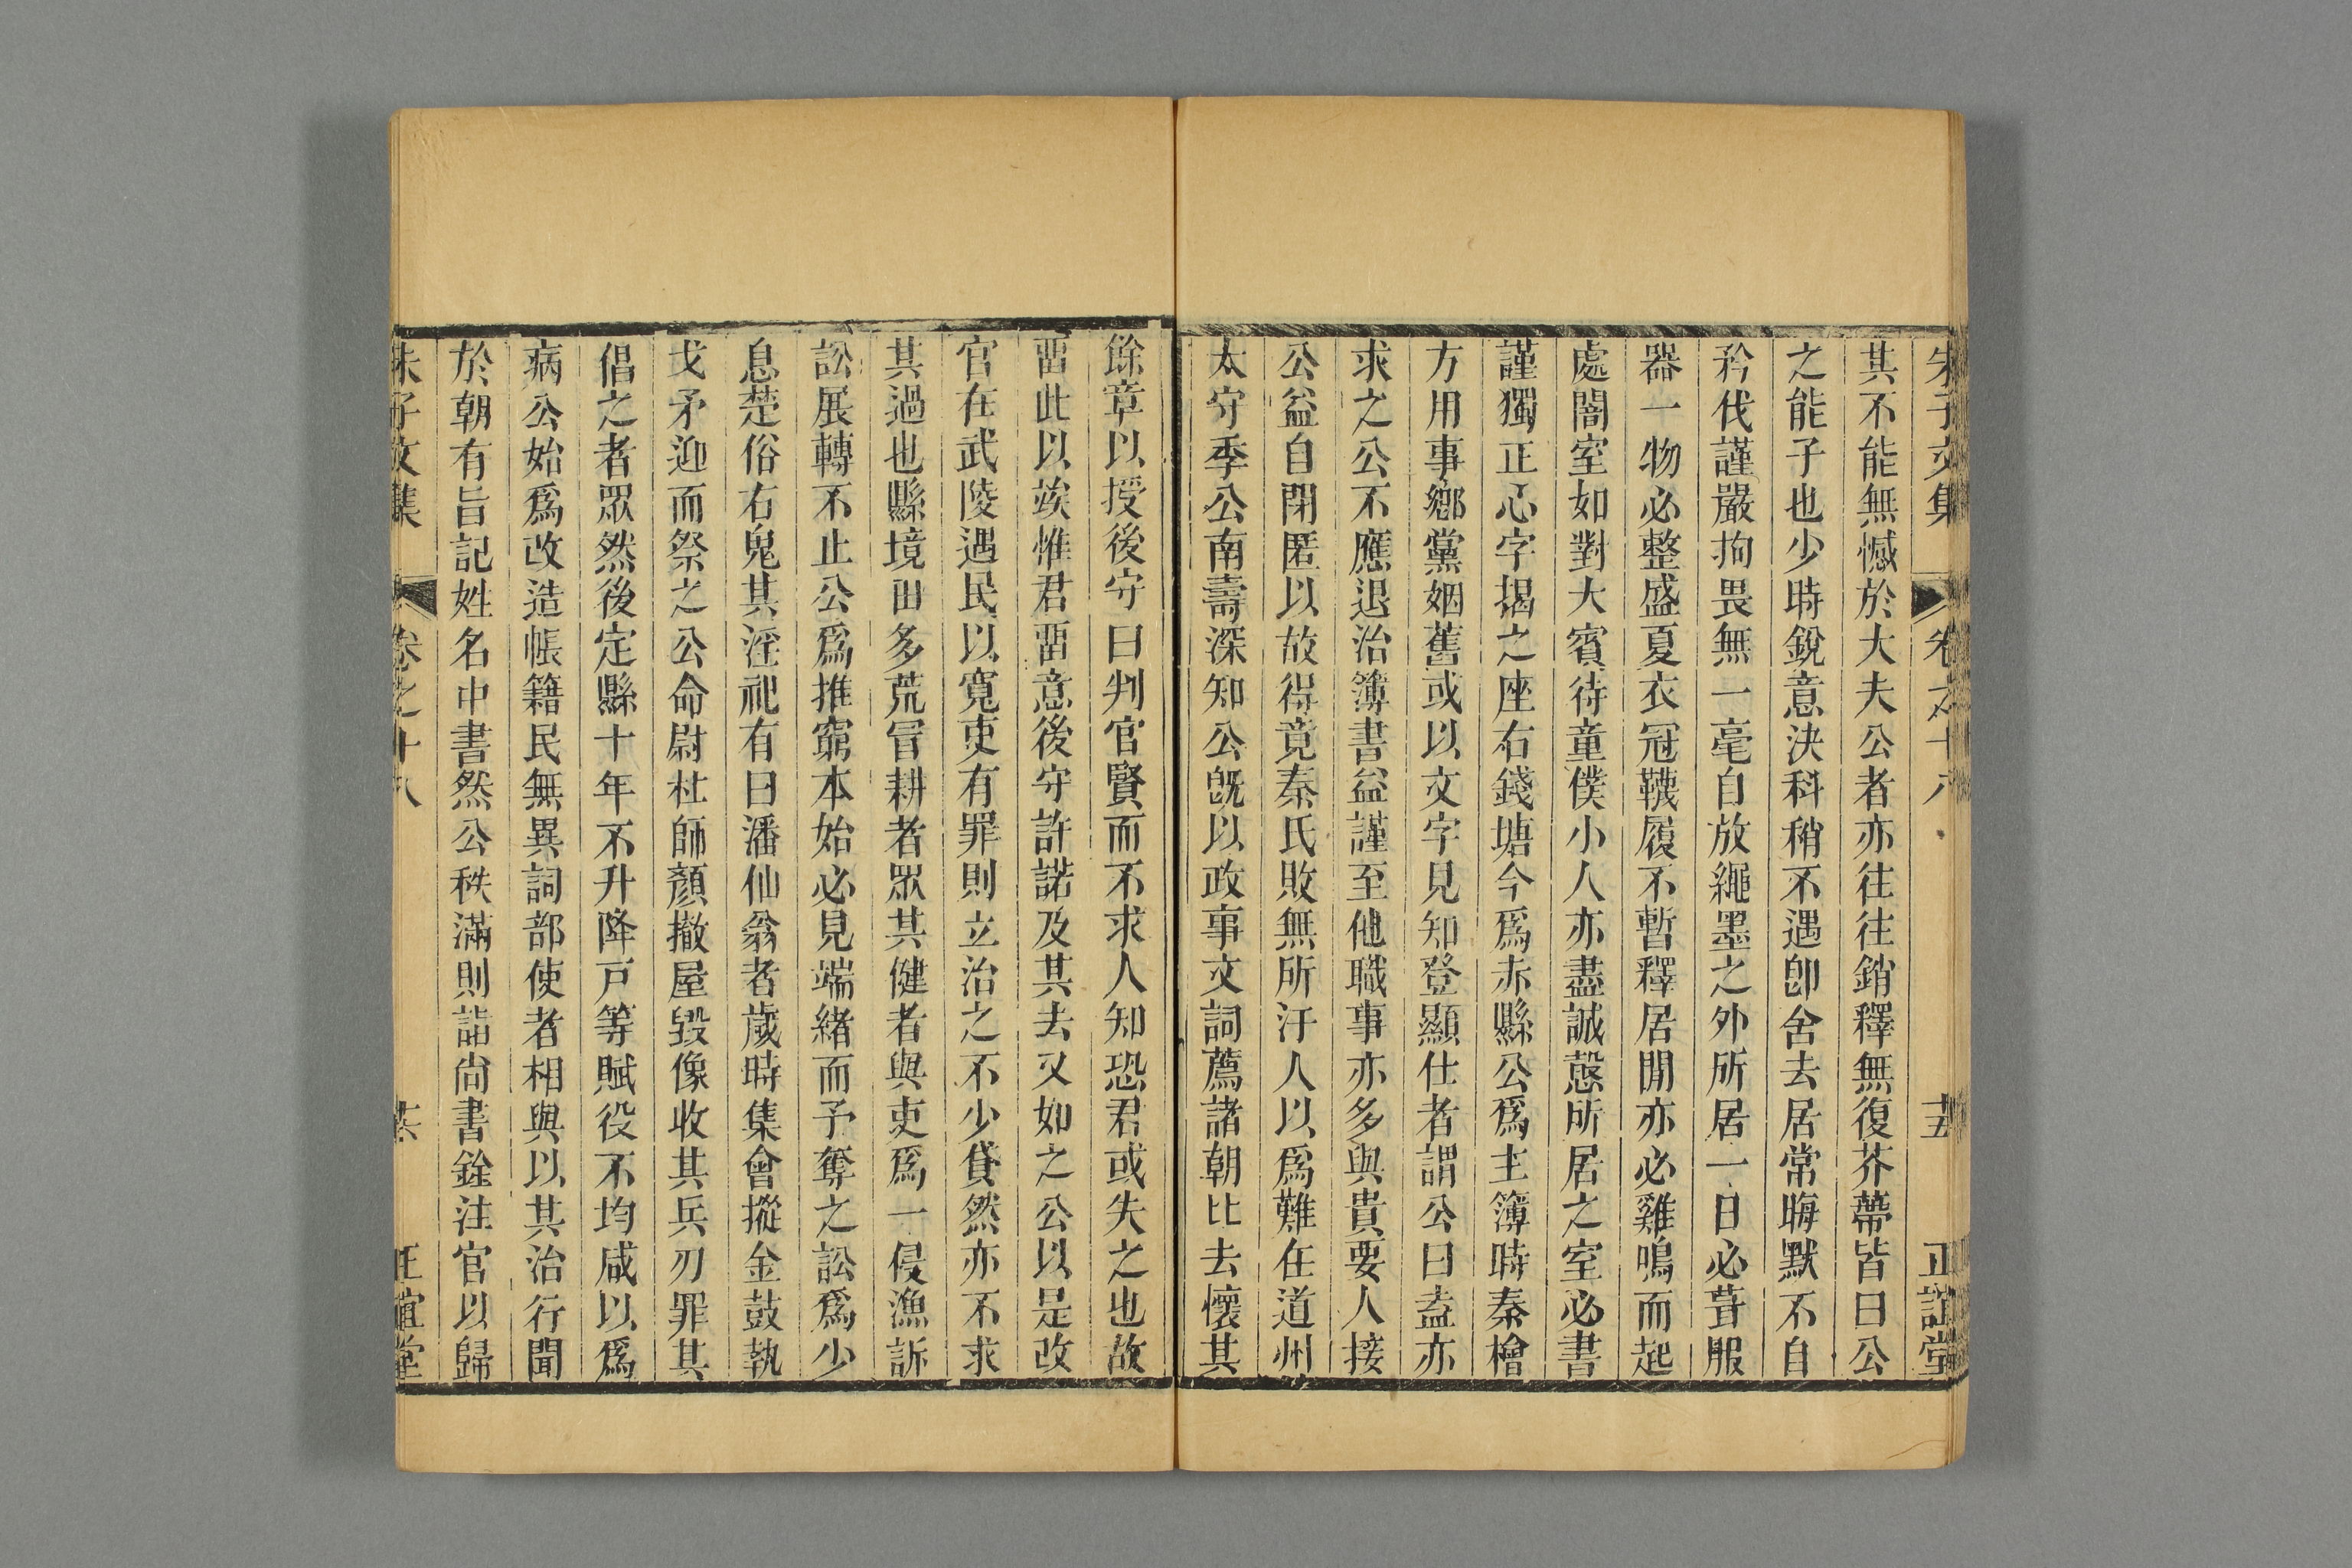 朱子文集 卷之十八 十五 正誼堂
其不能無憾於大夫公者亦往往銷釋無復芥蔕皆曰公
之能子也少時銳意決科稍不遇卽舍去居常晦默不自
矜伐謹嚴拘畏無一毫自放繩墨之外所居一日必葺服
器一物必整盛夏衣冠韈履不暫釋居閒亦必雞鳴而起
處闇室如對大賓待童僕小人亦盡誠慤所居之室必書
謹獨正心字揭之座右錢塘今爲赤縣公爲主簿時秦檜
方用事鄉黨姻舊或以文字見知登顯仕者謂公曰盍亦
求之公不應退治簿書益謹至他職事亦多與貴要人接
公益自閉匿以故得竟秦氏敗無所汙人以爲難在道州
太守季公南壽深知公旣以政事文詞薦諸朝比去懷其
餘章以授後守曰判官賢而不求人知恐君或失之也故
畱此以竢惟君畱意後守許諾及其去又如之公以是改
官在武陵遇民以寬吏有罪則立治之不少貸然亦不求
其過也縣境田多荒冒耕者眾其健者與吏爲一侵漁訴
訟展轉不止公爲推窮本始必見端緒而予奪之訟爲少
息楚俗右鬼其淫祀有曰潘仙翁者歲時集會摐金鼓執
戈矛迎而祭之公命尉杜師顏撤屋毀像收其兵刃罪其
倡之者眾然後定縣十年不升降戸等賦役不均咸以爲
病公始爲改造帳籍民無異詞部使者相與以其治行聞
於朝有旨記姓名中書然公秩滿則詣尙書銓注官以歸
朱子文集 卷之十八 共 正誼堂